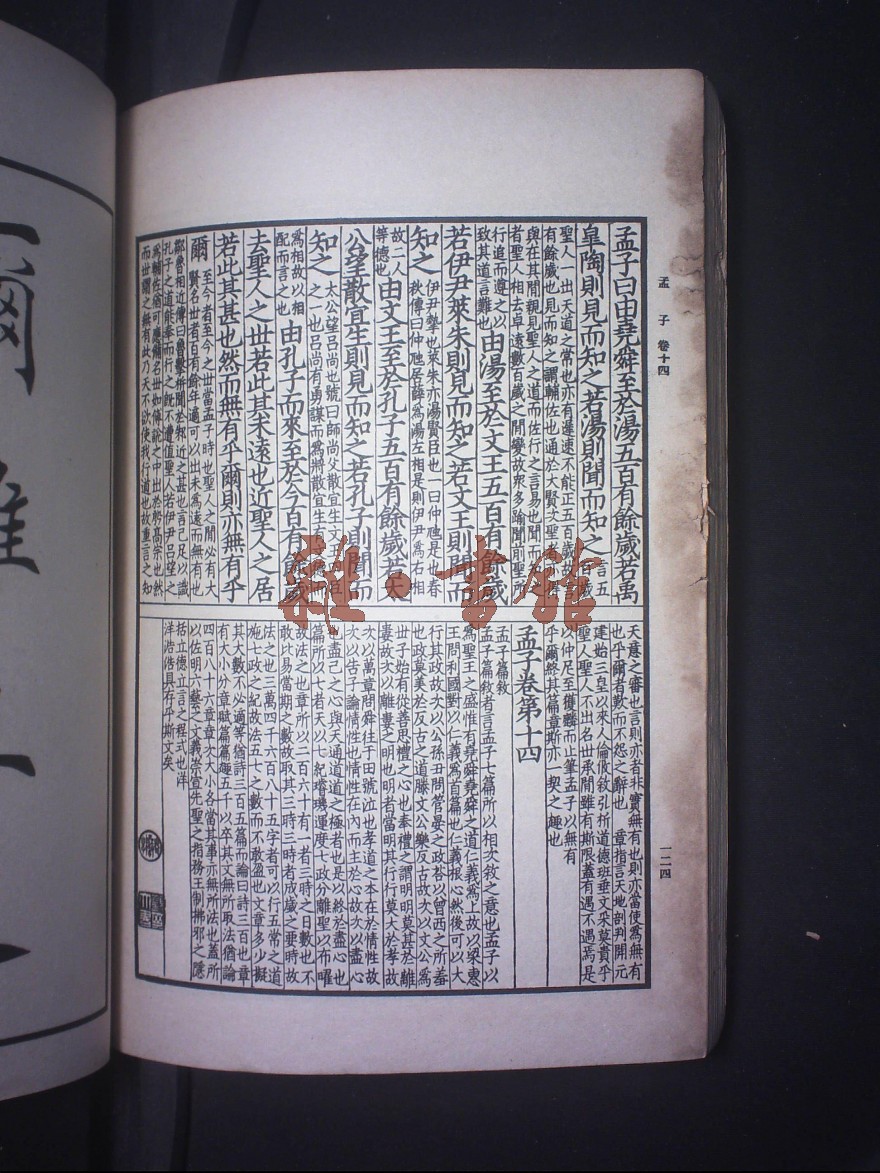 孟子 卷十四
一二四
孟子曰由堯舜至於湯五百有餘歲若禹
皐陶則見而知之若湯則聞而知之 言五百歲
聖人一出天道之常也亦有遲速不能正五百歲故言
有餘歲也見而知之謂輔佐也通於大賢次聖者
與在其間親見聖人之道而佐行之言易也聞
者聖人相去卓遠數百歲之間變故衆多踰聞前聖所
行追而遵之以
致其道言難也
由湯至於文王五百有餘歲
若伊尹萊朱則見而知之若文王則聞而
知之
伊尹摯也萊朱亦湯賢臣也一曰仲虺是也春
秋傳曰仲虺居薛爲湯左相是則伊尹爲右相
故二人
等德也
由文王至於孔子五百有餘歲若太
公望散宜生則見而知之若孔子則聞而
知之
太公望呂尚也號曰師尚父散宜生文王四臣
之一也呂尚有勇謀而爲將散宜生有文德而
爲相故以相
配而言之也
由孔子而來至於今百有餘歲
去聖人之世若此其未遠也近聖人之居
若此其甚也然而無有乎爾則亦無有乎
爾
至今者至今之世當孟子時也聖人之間必有大
賢名世者百有餘年適可以出未爲遠而無有也
鄒魯相近傳曰魯擊柝聞於邾近之甚也言己足以識
孔子之道能奉而行之既不遭値聖人若伊尹呂望之
爲輔佐猶可應備名世如傅說之中出於殷高宗也然
而世謂之無有此乃天不欲使我行道也故重言之知
天意之審也言則亦者非實無有也則亦當使爲無有
也乎爾者歎而不怨之辭也 章指言天地剖判開元
建始三皇以來人倫攸敘引析道德班垂文采莫貴乎
聖人聖人不出名世承間雖有斯限蓋有遇不遇焉是
以仲尼至獲麟而止筆孟子以無有
乎爾終其篇章斯亦一契之趣也
孟子卷第十四
孟子篇敘
孟子篇敘者言孟子七篇所以相次敘之意也孟子以
爲聖王之盛惟有堯舜堯舜之道仁義爲上故以梁惠
王問利國對以仁義爲首篇也仁義根心然後可以大
行其政故次以公孫丑問管晏之政荅以曾西之所羞
也政莫美於反古之道滕文公樂反古故次以文公爲
世子始有從善思禮之心也奉禮之謂明明莫甚於離
婁故次以離婁之明也明者當明其行行莫大於孝故
次以萬章問舜往于田號泣也孝道之本在於情性故
次以告子論情性也情性在內而主於心故次以盡心
也盡己之心與天通道道之極者也是以終於盡心也
篇所以七者天以七紀璿璣運度七政分離聖以布曜
故法之也章所以二百六十有一者三時之日數也不
敢比易當期之數故取其三時三時者成歲之要時故
法之也三萬四千六百八十五字者可以行五常之道
施七政之紀故法五七之數而不敢盈也文章多少擬
其大數不必適等猶詩三百五篇而論曰詩三百也章
有大小分章賦篇篇趣五千以卒其文無所取法猶論
四百八十六章章次大小各當其事亦無所法也蓋所
以佐明六藝之文義崇宣先聖之指務王制拂邪之隱
括立德立言之程式也洋
洋浩浩具存乎斯文矣
爾雅
雜·書館